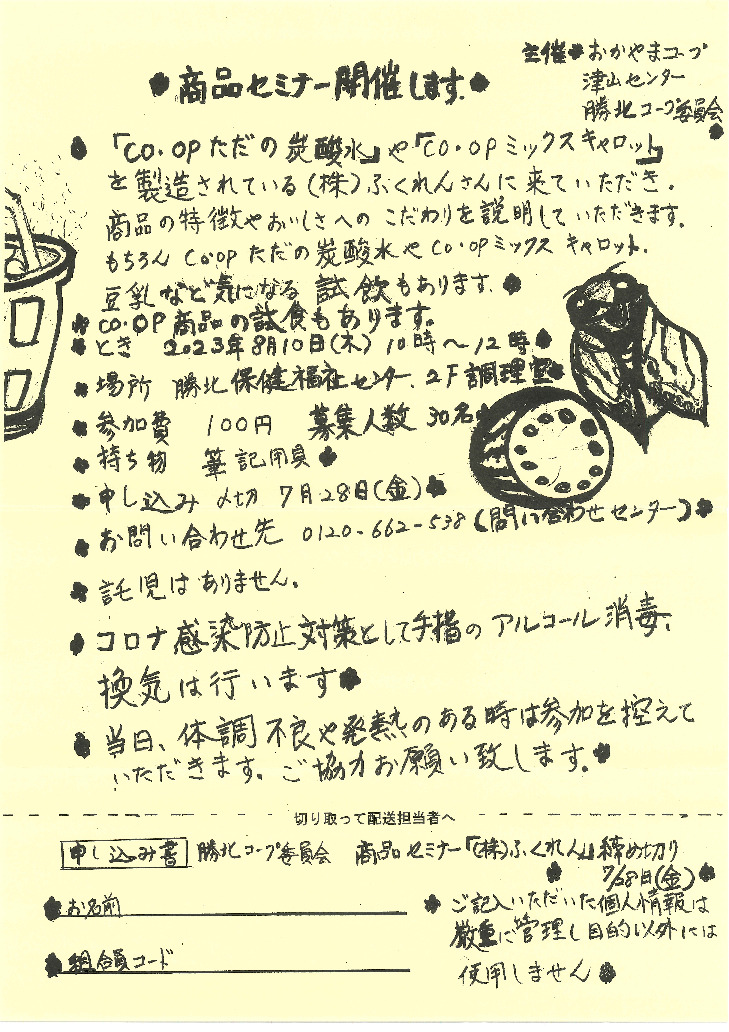 主催 おかやまコープ
津山センター
勝北コープ委員会
商品セミナー開催します。
「CO・OPただの炭酸水」や「CO・OPミックスキャロット」
を製造されている(株)ふくれんさんに来ていただき、
商品の特徴やおいしさへのこだわりを説明していただきます。
もちろん CO・OPただの炭酸水やCO・OPミックスキャロット、
豆乳など気になる試飲もあります。
CO・OP商品の試食もあります。
とき 2023年8月10日(木) 10時〜12時
場所 勝北保健福祉センター、2F調理室
参加費 100円 募集人数 30名
持ち物 筆記用具
申し込み 〆切 7月28日(金)
お問い合わせ先 0120-662-538(問い合わせセンター)
託児はありません。
コロナ感染防止対策として手指のアルコール消毒、
換気は行います
当日、体調不良や発熱のある時は参加を控えて
いただきます。ご協力お願い致します。
切り取って配送担当者へ
申し込み書 勝北コープ委員会 商品セミナー「(株)ふくれん」締め切り
7/28日(金)
お名前
組合員コード
ご記入いただいた個人情報は
厳重に管理し目的以外には
使用しません